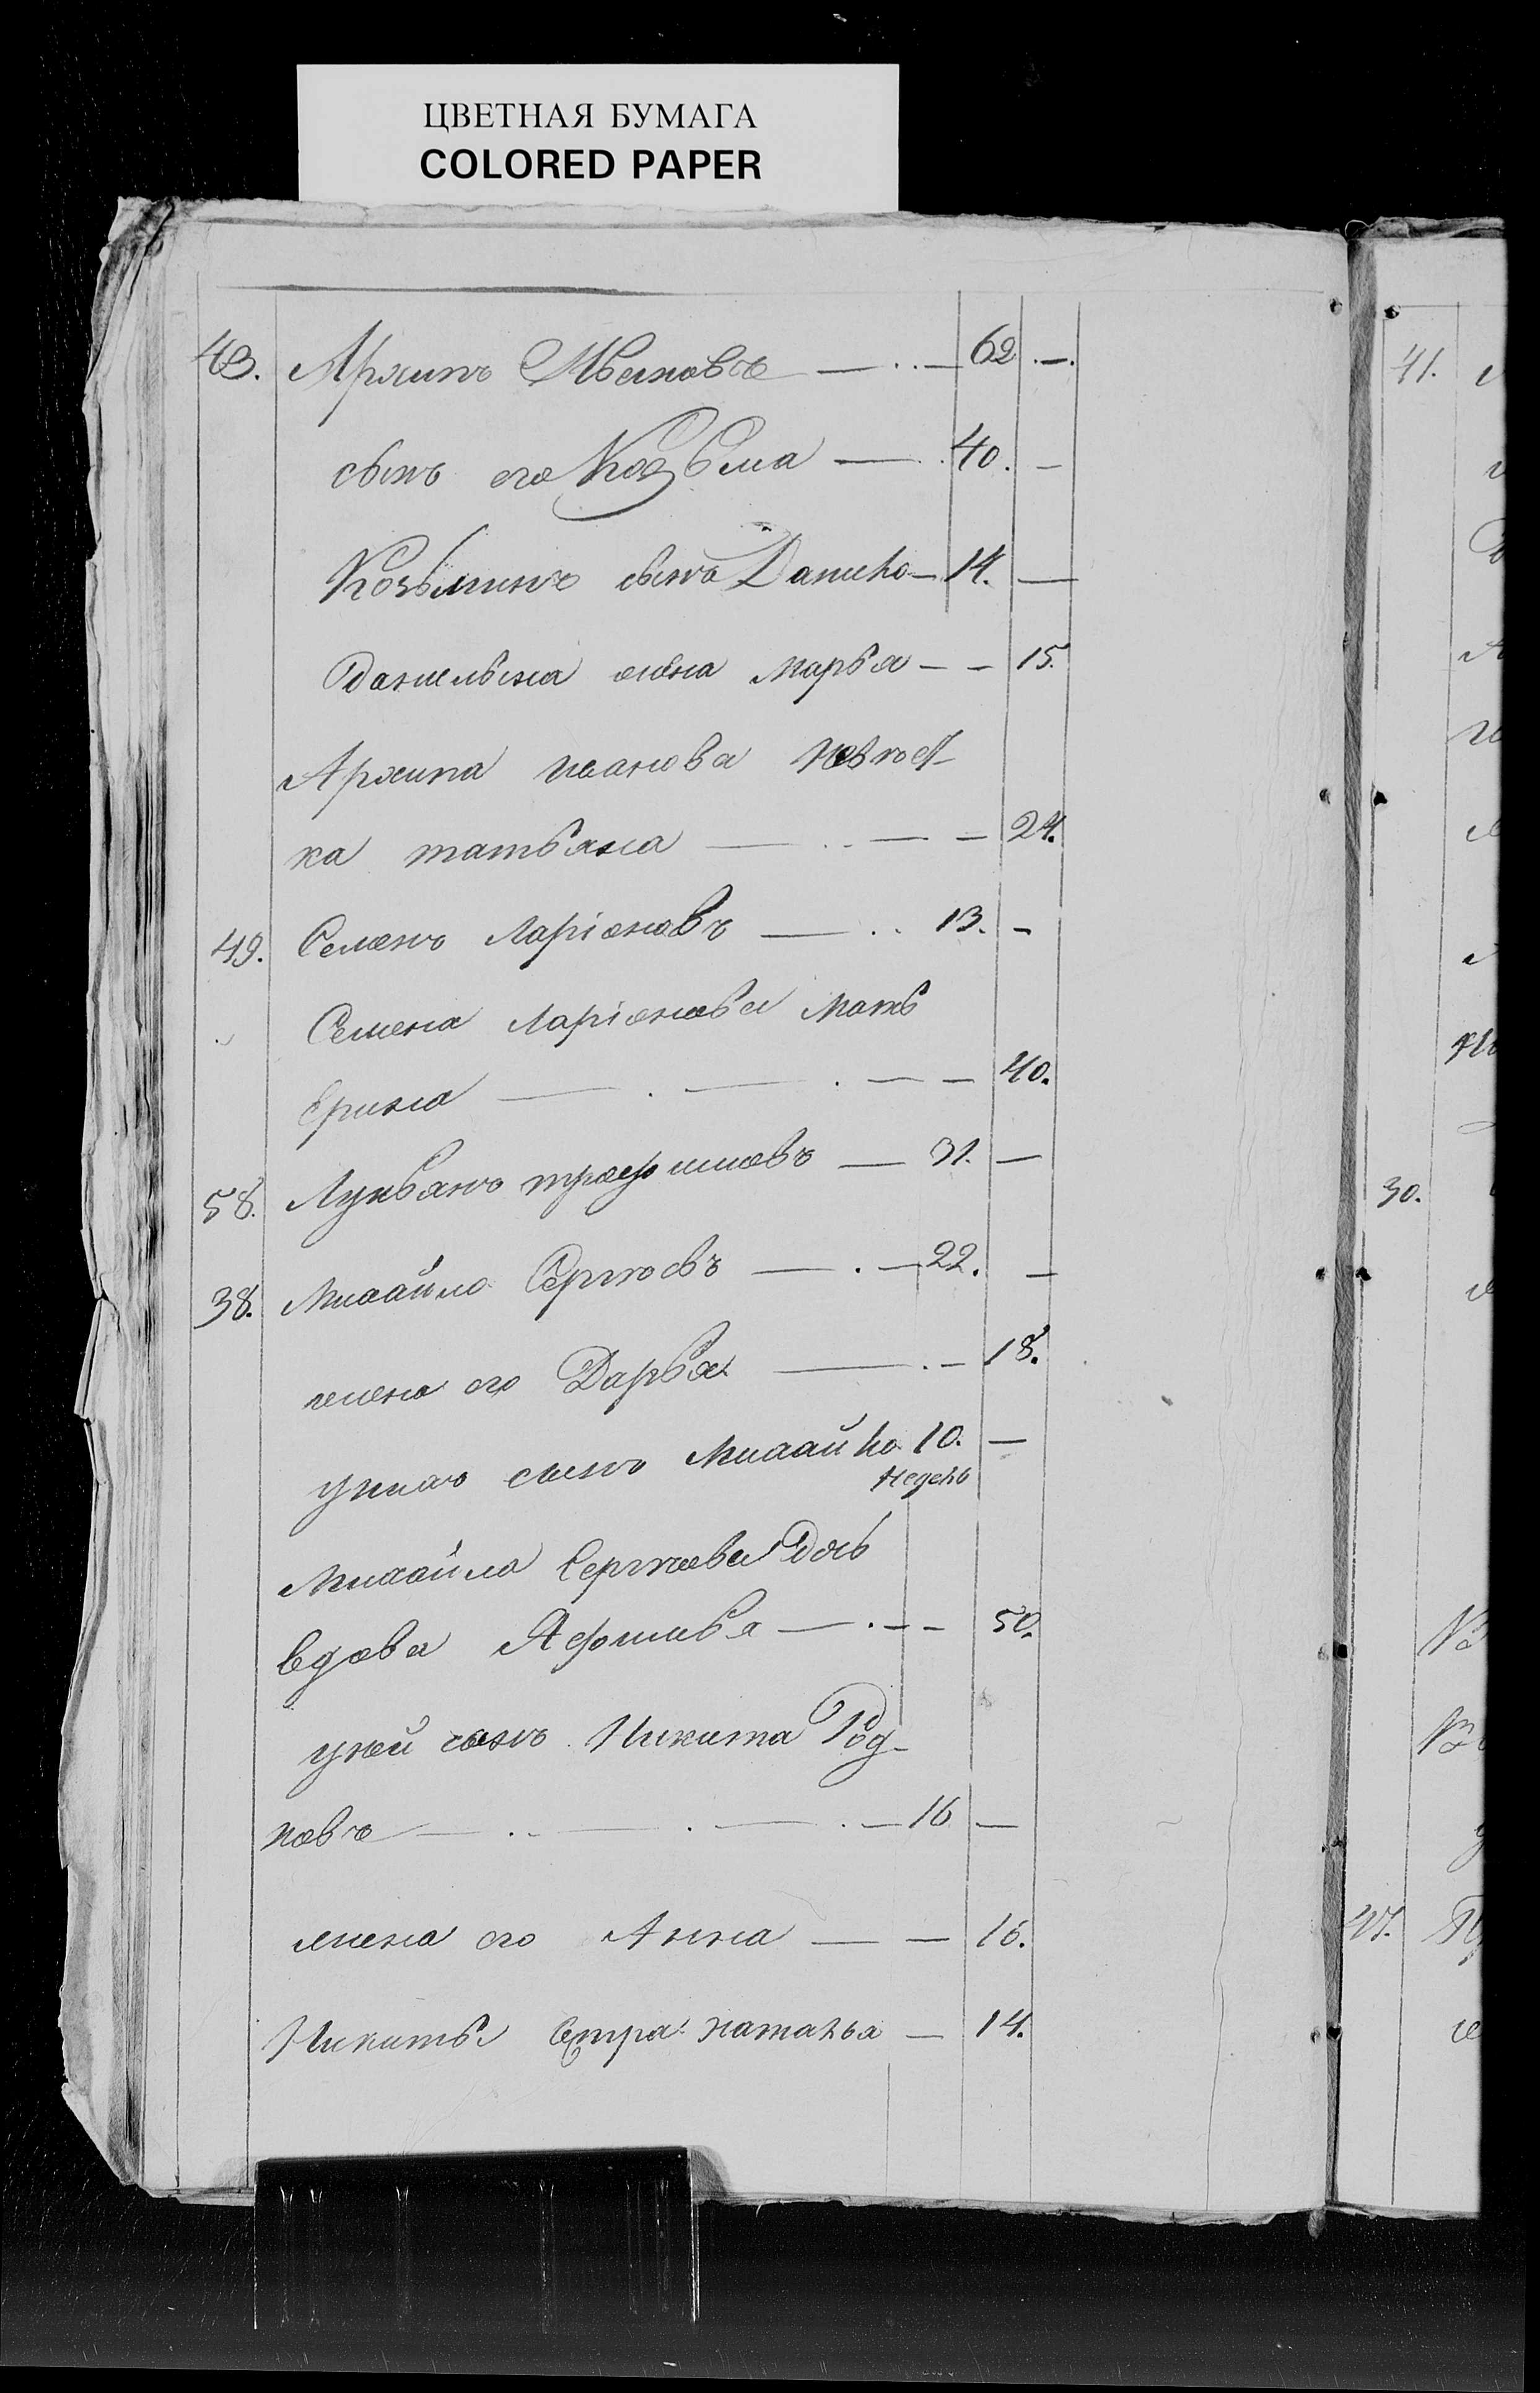 ЦВЕТНАЯ БУМАГА
COLORED PAPER
43. Архипъ Ивановъ — . . — 62 . —.
сынъ его Козьма — . 40. —
Козьминъ сынъ Данило — 14. —
Данильина жена марья — — 15.
Архипа иванова невѣст-
ка татьяна — . . — — 24.
49. Семенъ Ларіоновъ — . . 13. —
Семена Ларіонова мать
Ерина — . — . — — 40.
58. Лукьянъ трофимовъ — 31. —
38. Михайло Сергѣевъ — . — 22. —
жена его Дарья — . — 18.
у нихъ сынъ Михайло 10. —
недель
Михайла Сергѣева
вдова Афимья — . — — 50.
у ней сынъ Никита Род-
новъ — . . — . — . — 16 —
жена его Анна — — 16.
Никиты сестра наталья — 14.
41.
30.
47.